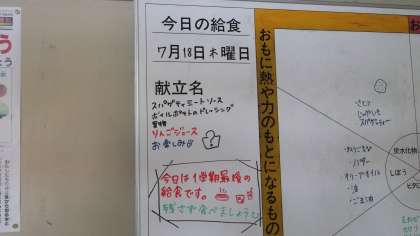 今日の給食
7月18日木曜日
献立名
スパゲティミートソース
ボイルポテトのドレッシング
りんごジュース
お楽しみ
今日は1学期最後の
給食です。
残さず食べましょう
おもに熱や力のもとになるもの
さとう
じゃがいも
スパゲッティー
バター
オリーブオイル
油
ごま油
炭水化物
しぼう